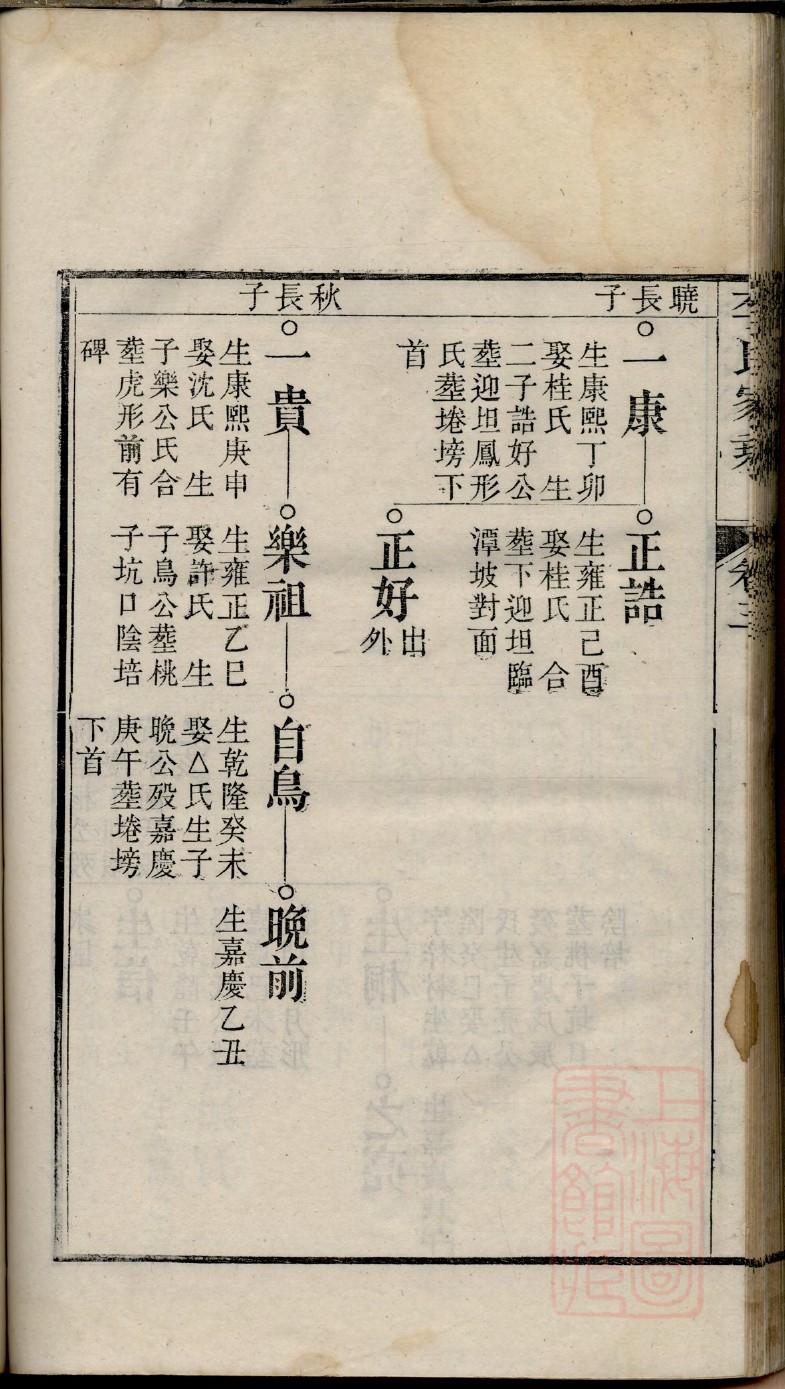 李氏家乘
卷三
驍長子
一康
生康熙丁卯
娶桂氏 生
二子誥好公
塟迎坦鳳形
氏塟埢塝下
首
正誥
生雍正己酉
娶桂氏 合
塟下迎坦臨
潭坡對面
正好
出
外
秋長子
一貴
生康熙庚申
娶沈氏 生
子樂公氏合
塟虎形前有
碑
樂祖
生雍正乙巳
娶許氏 生
子鳥公塟桃
子坑口陰培
自鳥
生乾隆癸未
娶△氏生子
晚公殁嘉慶
庚午塟埢塝
下首
晚前
生嘉慶乙丑
上海圖
書館藏